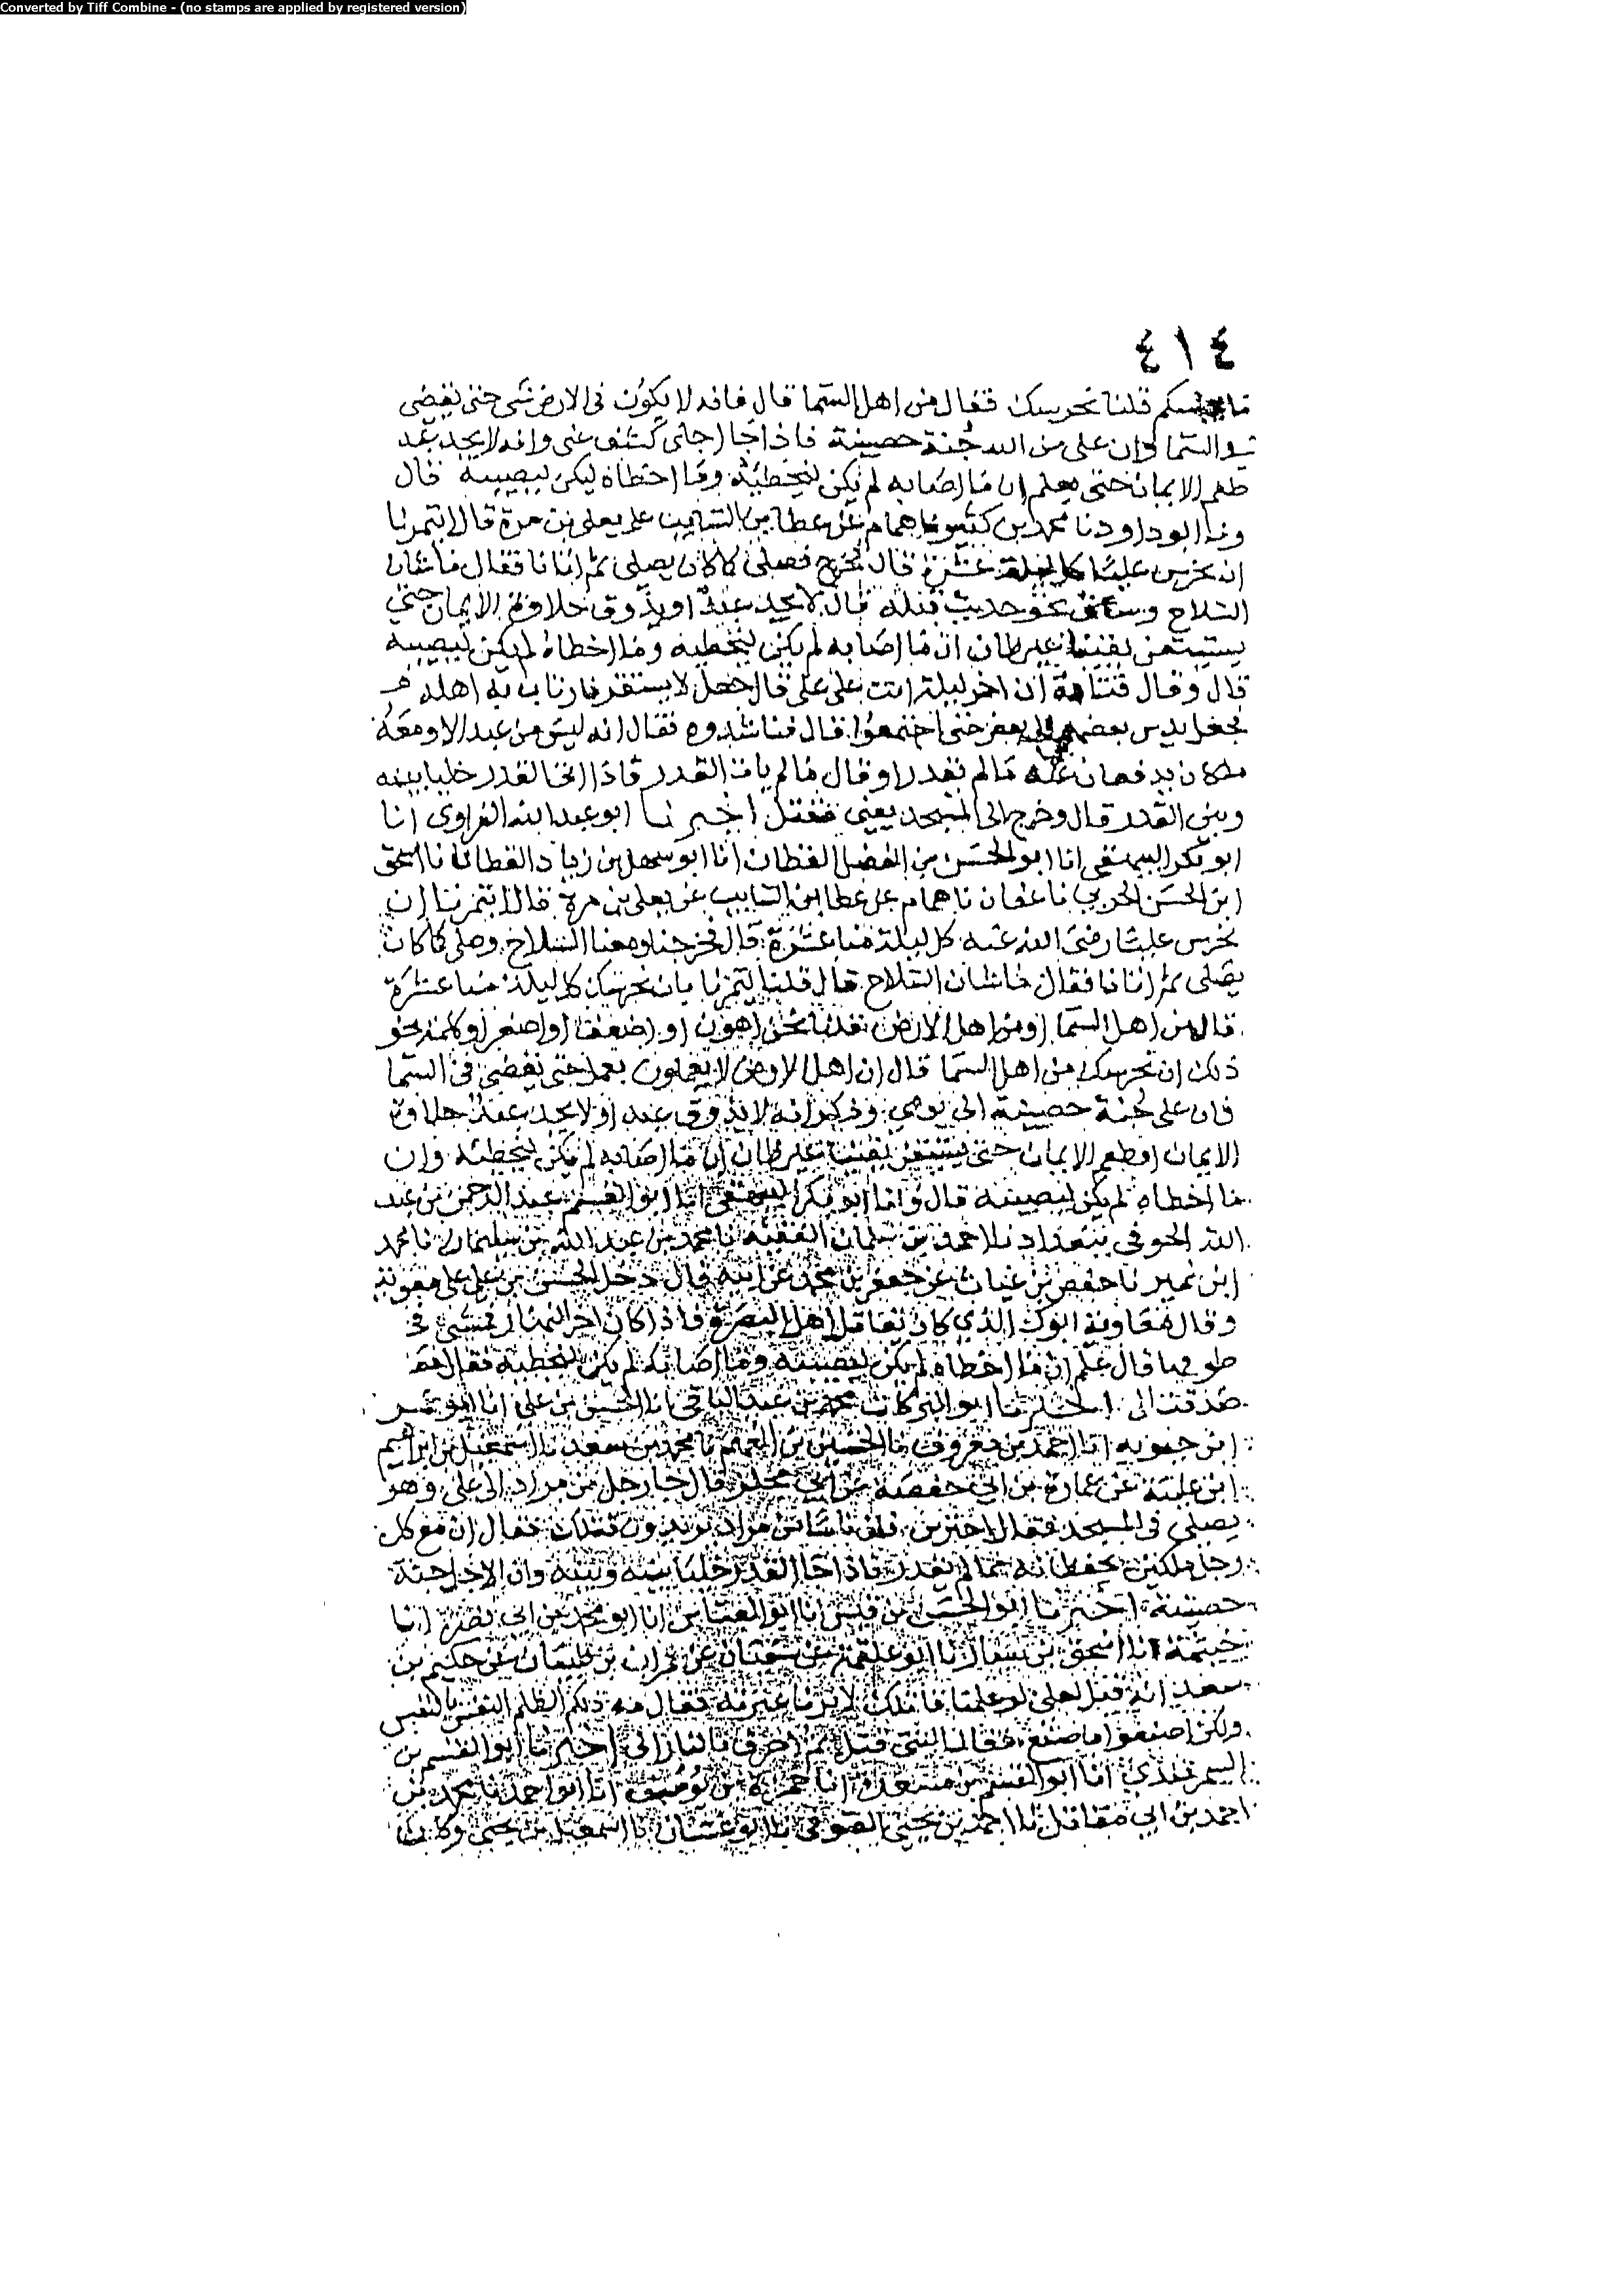 Converted by Tiff Combine - (no stamps are applied by registered version)
٤١٤
ما يجلسكم قلنا نحرسك فقال من اهل السما قال فانه لا يكون فى الارض شى حتى يقضى
فى السما وان على من الله جنة حصينة فاذا جا اجلى كشف عنى وانه لا يجد عبد
طعم الايمان حتى يعلم ان ما اصابه لم يكن ليخطيه وما اخطاه لم يكن ليصيبه قال
ونا ابو داود نا محمد بن كثير نا همام عن عطا بن السايب عن يعلى بن مرة قال ايتمرنا
ان نحرس عليا كل ليلة عشرة قال فخرج فصلى كما كان يصلى ثم اتانا فقال ما شان
السلاح وساق نحو حديث قبله قال لا يجد عبد او يذوق حلاوة الايمان حتى
يستيقن يقينا غير ظان ان ما اصابه لم يكن ليخطيه وما اخطاه لم يكن ليصيبه
قال وقال قتادة ان اخر ليلة اتت على على قال جعل لا يستقر فارتاب به اهله
فجعل يدس بعضهم الى بعض حتى اجتمعوا قال فناشدوه فقال انه ليس من عبد الا ومعه
ملكان يدفعان عنه ما لم يقدر او قال ما لم يات القدر فاذا اتى القدر خليا بينه
وبين القدر قال وخرج الى المسجد يعنى فقتل اخبرنا ابو عبد الله الفراوى انا
ابو بكر البيهقى انا ابو الحسين بن الفضل القطان انا ابو سهل بن زياد القطان نا اسحق
ابن الحسن الحربي نا عفان نا همام عن عطا بن السايب عن يعلى بن مرة قال ايتمرنا ان
نحرس عليا رضى الله عنه كل ليلة منا عشرة قال فخرجنا ومعنا السلاح وصلى كما كان
يصلى ثم اتانا فقال ما شان السلاح قال قلنا ايتمرنا بان نحرسك كل ليلة منا عشرة
قال من اهل السما او من اهل الارض قلنا نحن اهون او اضعف او اصغر او كلمة نحو
ذلك ان نحرسك من اهل السما قال ان اهل الارض لا يعملون بعمل حتى يقضى فى السما
فان على جنة حصينة الى يومى وذكر انه لا يذوق عبد او لا يجد عبد حلاوة
الايمان او طعم الايمان حتى يستيقن يقينا غير ظان ان ما اصابه لم يكن ليخطئه وان
ما اخطاه لم يكن ليصيبه قال وانا ابو بكر البيهقى انا ابو القسم عبد الرحمن بن عبيد
الله الحرفى ببغداد نا احمد بن سلمان الفقيه نا محمد بن عبد الله بن سليمان نا محمد
ابن نمير نا حفص بن غياث عن جعفر بن محمد عن ابيه قال دخل الحسن بن على على معوية
وقال معاوية ابوك الذي كان يقاتل اهل البصرة فاذا كان اخر النهار يمشى فى
طرقها قال علم ان ما اخطاه لم يكن ليصيبه وما اصابه لم يكن ليخطيه فقال
صدقت اخبرنا ابو البركات محمد بن عبد الباقى انا الحسن بن على انا ابو عمر
ابن حيويه انا احمد بن معروف نا الحسين بن الفهم نا محمد بن سعد نا اسمعيل بن ابراهيم
ابن علية عن عمارة بن ابي حفصة عن ابي مجلز قال جا رجل من مراد الى على وهو
يصلى فى المسجد فقال احترس فان ناسا من مراد يريدون قتلك فقال ان مع كل
رجل ملكين يحفظانه مما لم يقدر فاذا جا القدر خليا بينه وبينه وان الاجل جنة
حصينة اخبرنا ابو الحسن بن قبيس انا ابو العباس انا ابو محمد بن ابى نصر انا
خيثمة نا اسحق بن سيار نا ابو علقمة عن سفيان عن عمران بن ظبيان عن حكيم بن
سعد انه قيل لعلى لو علمنا قاتلك لابرنا عترته فقال مه ذلكم الظلم النفس بالنفس
ولكن اصنعوا ما صنع بقاتل النبى قتل ثم احرق بالنار اخبرنا ابو القسم بن
السمرقندي انا ابو القسم بن مسعدة انا حمزة بن يوسف انا ابو احمد نا محمد بن
احمد بن ابي مقاتل نا احمد بن يحيى الصوفى نا ابو غسان نا اسمعيل بن يحيى وكان